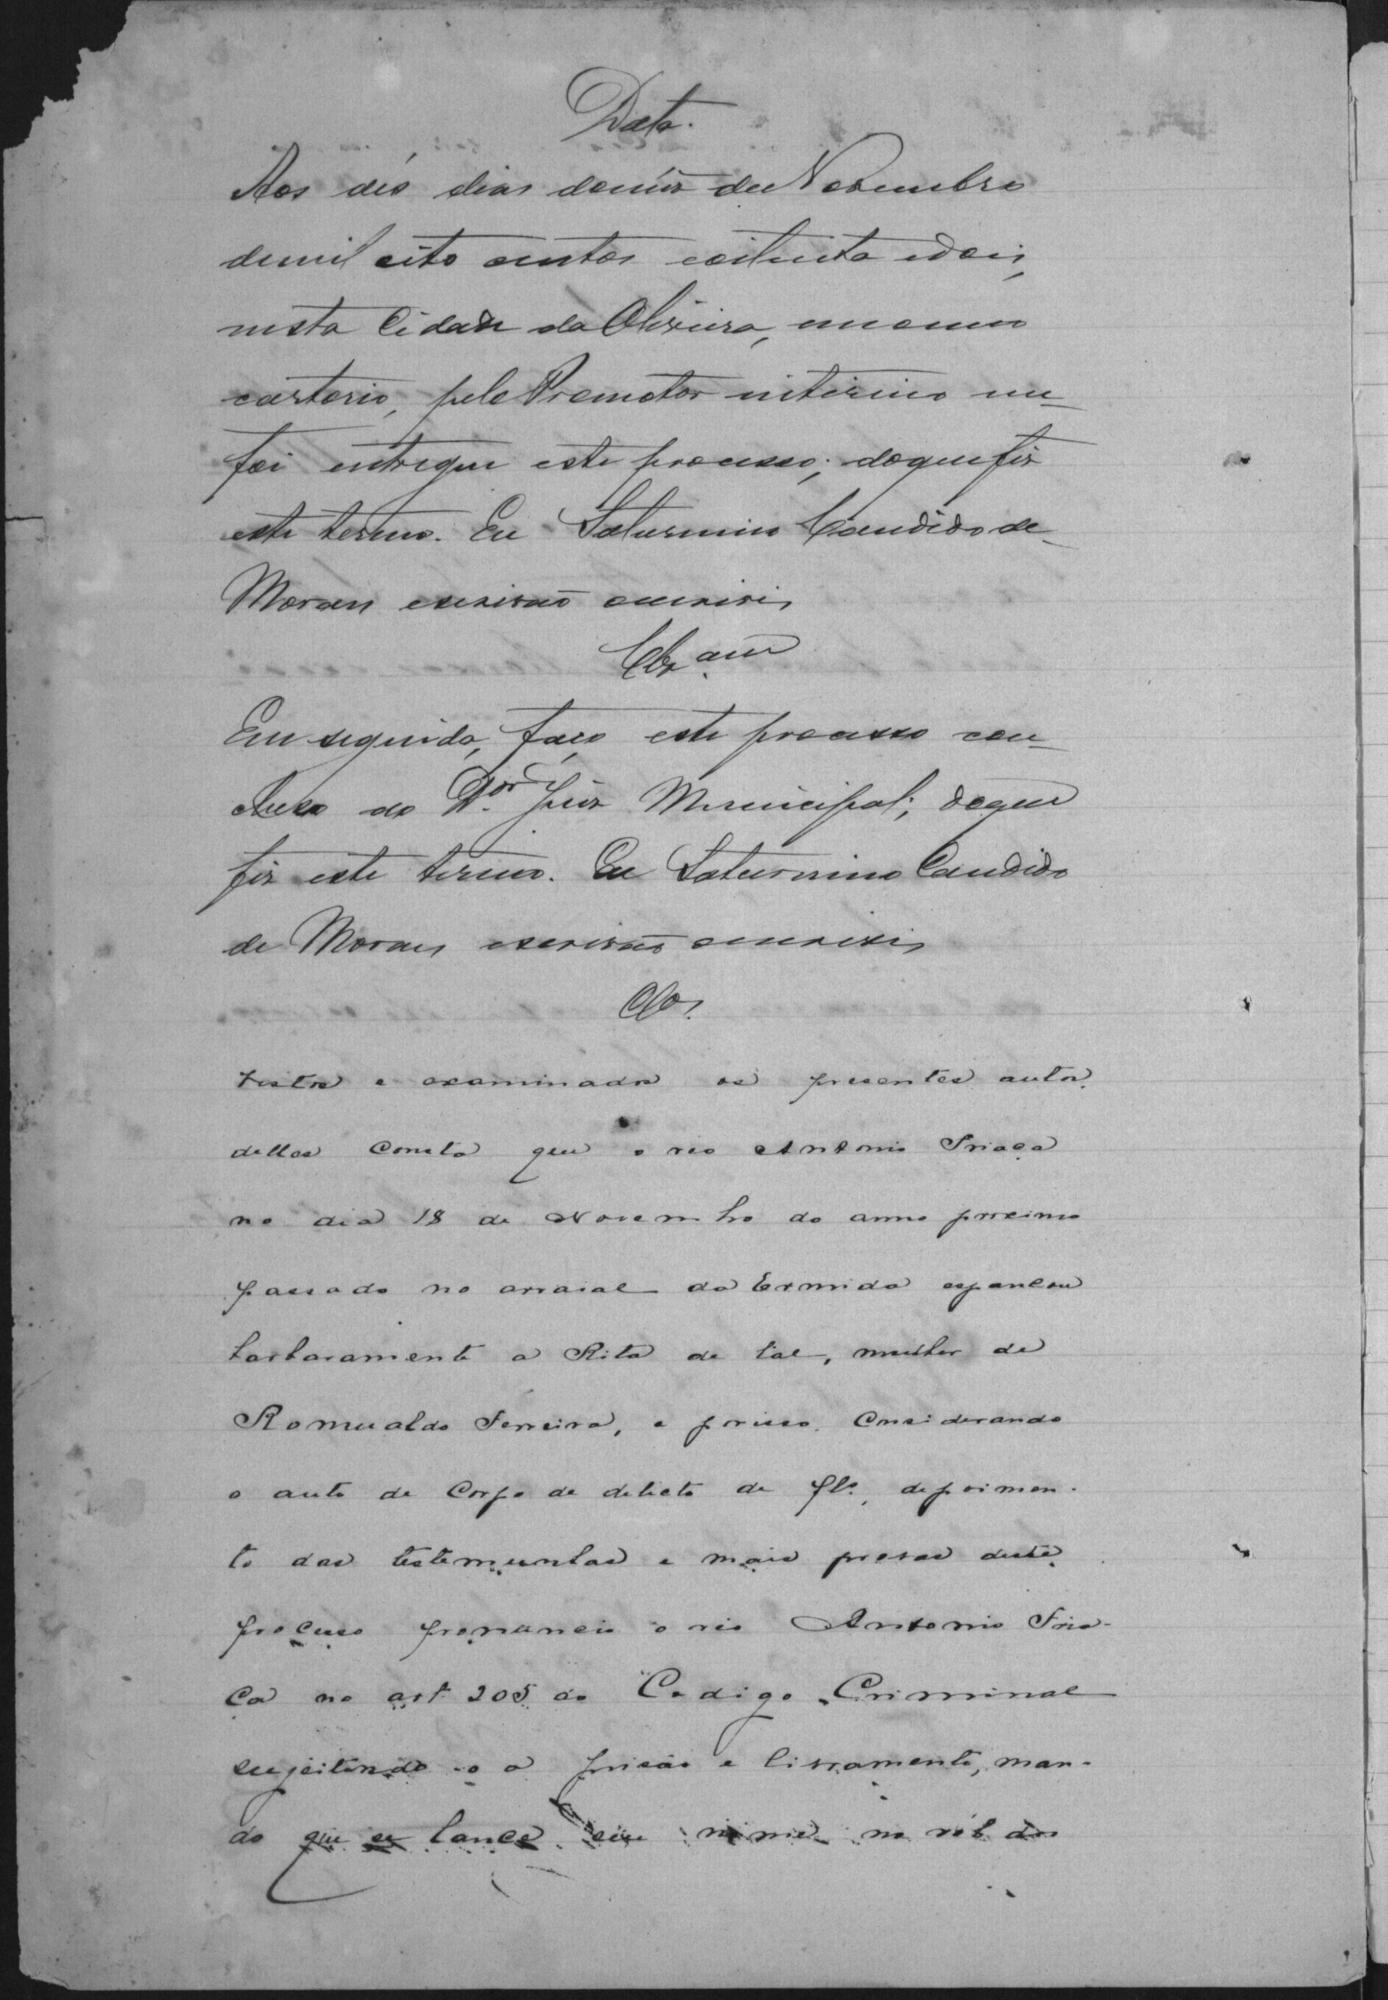 Data.
Aos dés dias domês de Novembro
demil oito centos e oitenta e dois,
nesta Cidade da Oliveira, em meu
cartorio, pelo Promotor interino me
foi entregue este processo; do que fiz
este termo. Eu Saturnino Candido de
Moraes escrivão o escrevi
Clsam
Em seguida, faço este processo con-
cluso ao Dor Juiz Municipal; do que
fiz este termo. Eu Saturnino Candido
de Moraes escrivão o escrevi
Clos.
Vistos e examinados os presentes autos
delles consta que o reo Antonio Friaça
no dia 18 de Novembro do anno proximo
passado no arraial da Ermida espancou
barbaramente a Rita de tal, mulher de
Romualdo Ferreira, e por isso. Considerando
o auto de Corpo de delicto de fls, depoimen-
to das testemunhas e mais provas deste
processo pronuncio o reo Antonio Fria-
ça no art 205 do Codigo Criminal
sujeitando-o a prisão e livramento, man-
do que se lance seu nome no rol dos